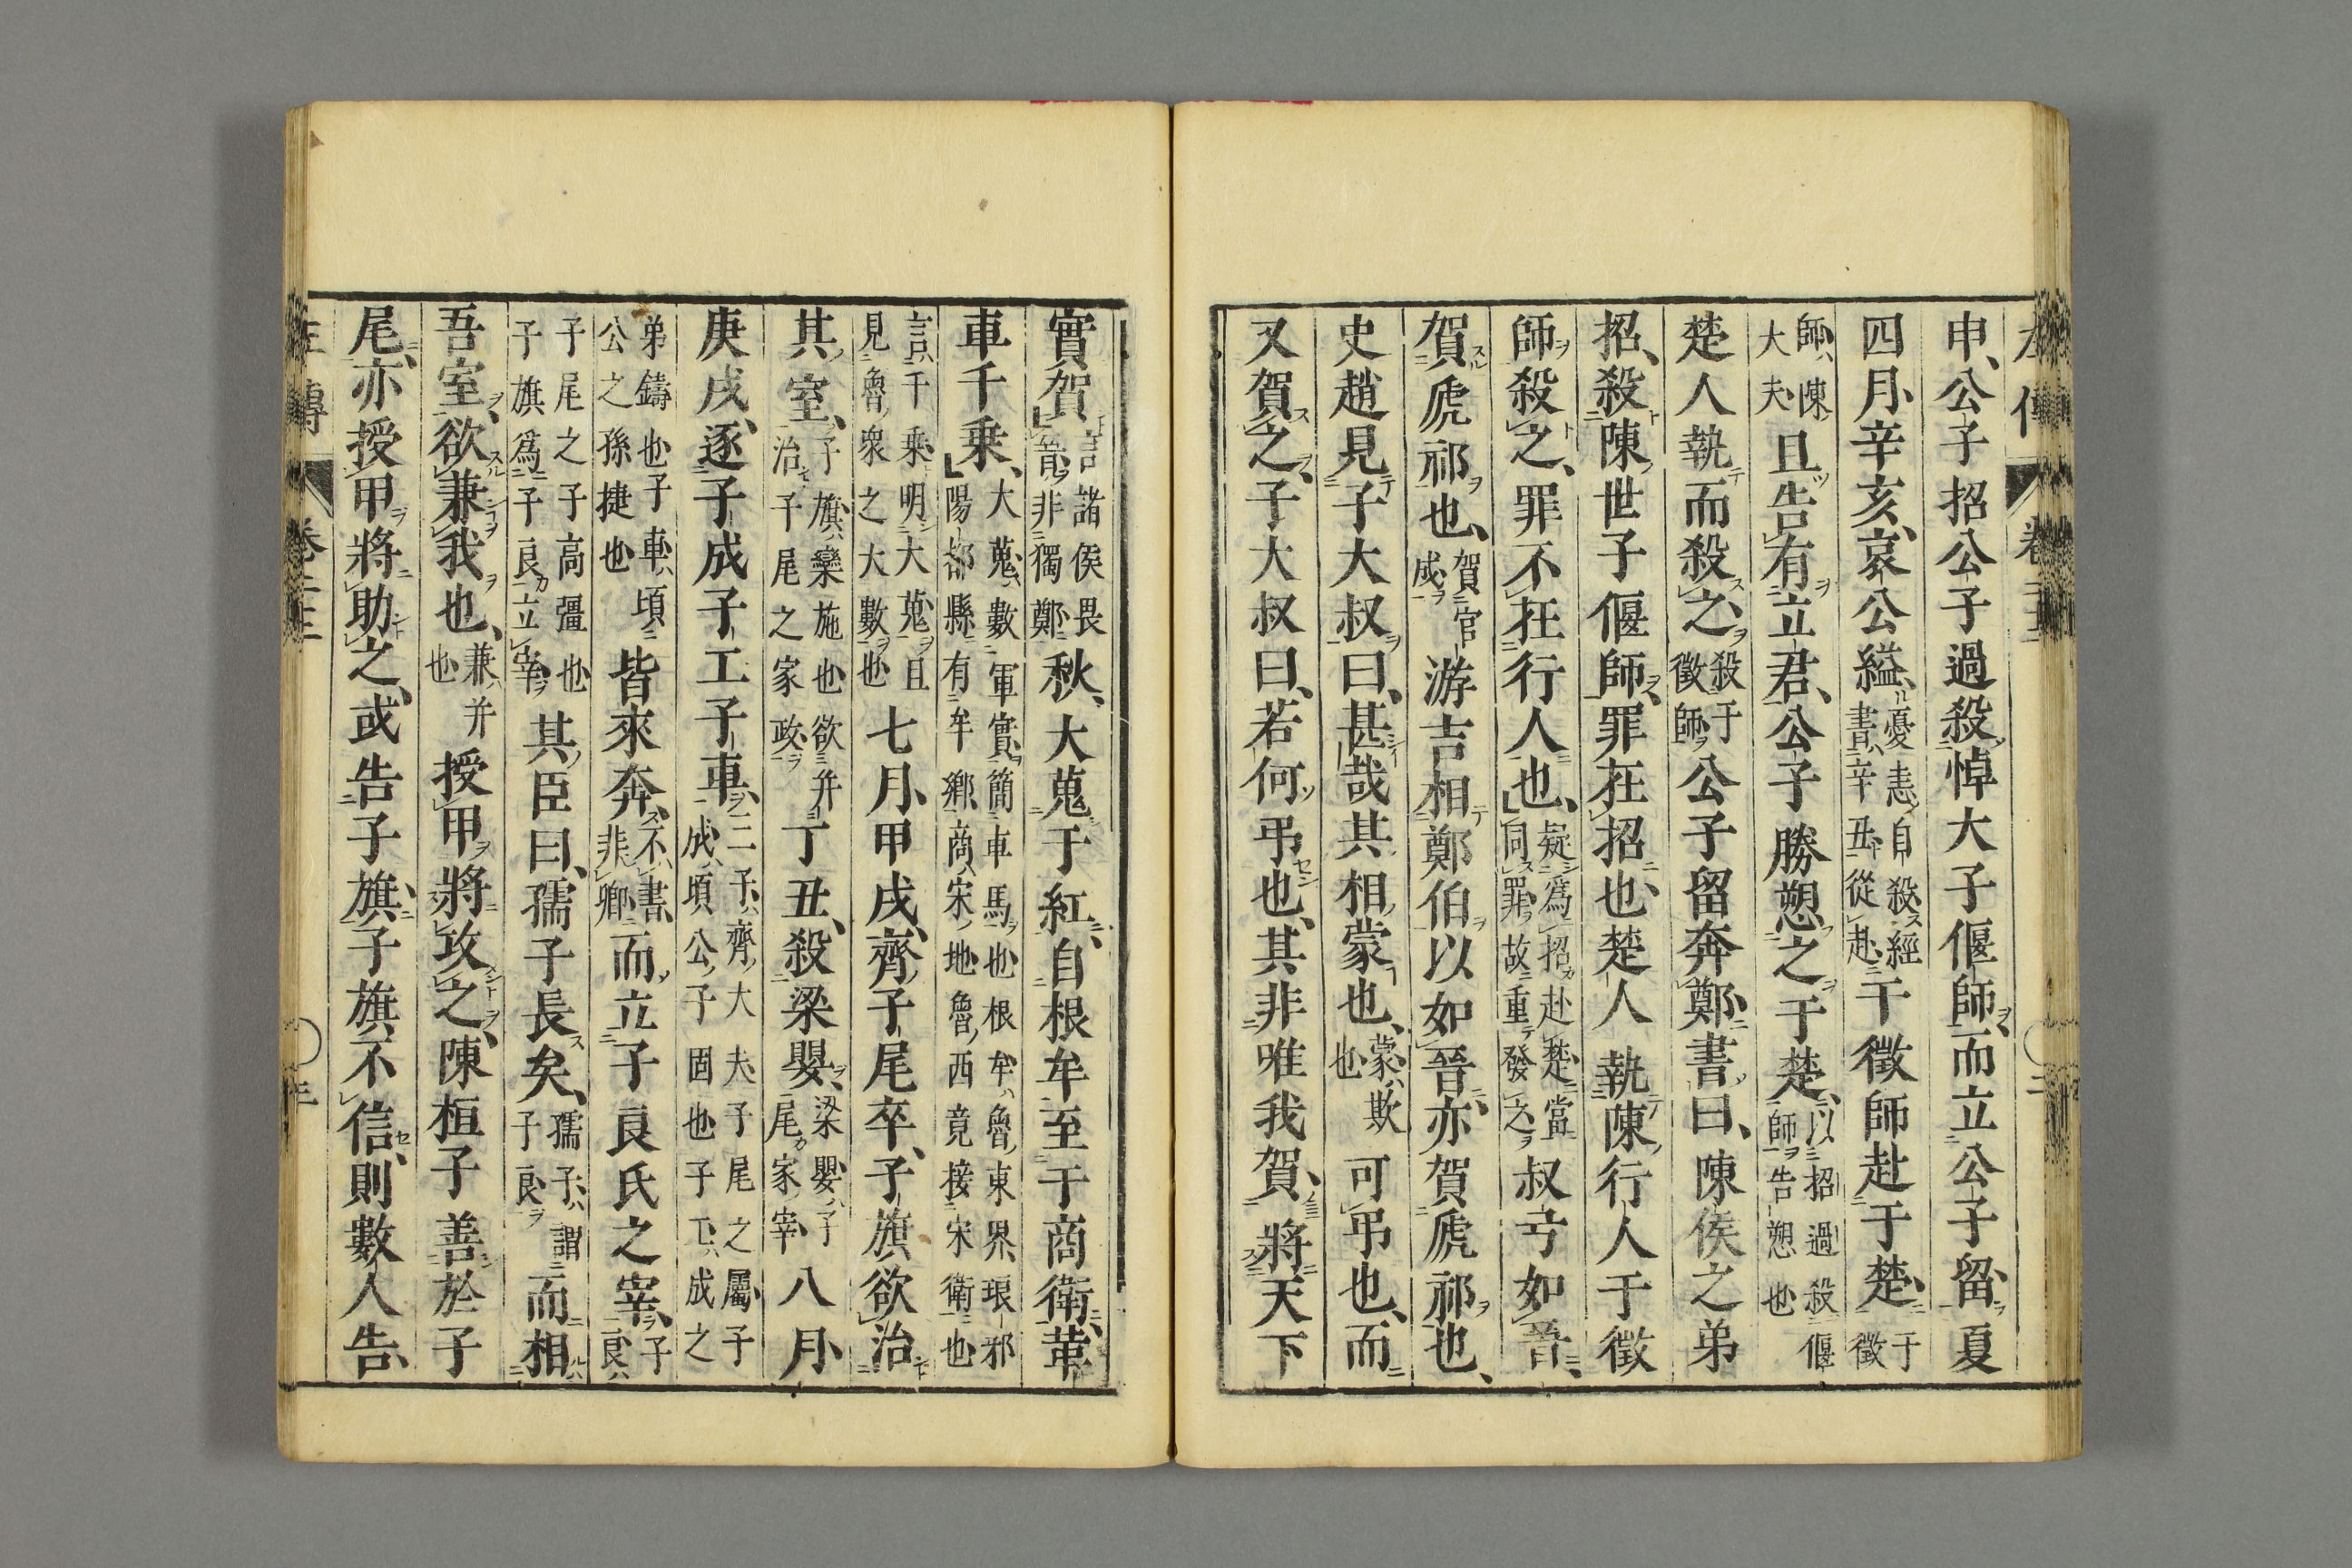 申、公子招公子過殺悼大子偃師、而立公子留、夏
四月、辛亥、哀公縊、憂恚自殺經書辛丑從赴干徵師赴于楚、于徵
師、陳大夫、且告有立君、公子勝愬之于楚、以招過殺偃師告愬也
楚人執而殺之、殺于徵師公子留奔鄭、書曰、陳侯之弟
招、殺陳世子偃師、罪在招也、楚人執陳行人于徵
師殺之、罪不在行人也、疑爲招赴楚當同罪故重發之叔弓如晉、
賀虒祁也、賀官成游吉相鄭伯以如晉、亦賀虒祁也、
史趙見子大叔曰、甚哉其相蒙也、蒙欺也可弔也、而
又賀之、子大叔曰、若何弔也、其非唯我賀、將天下
實賀、言諸侯畏晉非獨鄭秋、大蒐于紅、自根牟至于商衛、革
車千乘、大蒐數軍實簡車馬也根牟魯東界琅邪陽都縣有牟鄉商宋地魯西竟接宋衛也
言千乘明大蒐且見魯衆之大數也七月、甲戌、齊子尾卒、子旗欲治
其室、子旗欒施也欲并治子尾之家政丁丑、殺梁嬰、梁嬰子尾家宰八月
庚戌、逐子成子工子車、三子齊大夫子尾之屬子成頃公子固也子工成之
弟鑄也子車頃公之孫捷也皆來奔、不書非卿而立子良氏之宰、子良
子尾之子高彊也子旗爲子良立宰其臣曰、孺子長矣、孺子謂子良而相
吾室、欲兼我也、兼并也授甲將攻之、陳桓子善於子
尾、亦授甲將助之、或告子旗、子旗不信、則數人告、
左傳 卷二十二 三